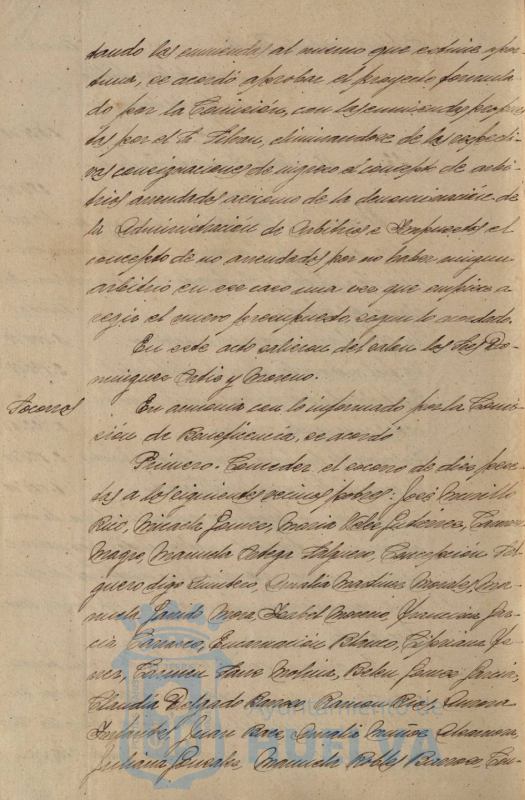 tando las enmiendas al mismo que estime opor-
tuna, se acordó aprobar el proyecto formula-
do por la Comisión, con las enmiendas propues-
tas por el Sr. eliminandose de las respecti-
vas consignaciones de ingreso el concepto de arbi-
trios arrendados asi como de la denominación de
la Administración de Arbitrios e Impuestos el
concepto de no arrendados por no haber ningun
arbitrio en ese caso una vez que empiece a
regir el nuevo presupuesto, segun lo acordado.
En este acto salieron del salon los Sres Do-
minguez y Moreno.
Socorros
En armonia con lo informado por la Comi-
sión de Beneficencia, se acordó
Primero. Conceder el socorro de diez pese-
tas a los siguientes vecinos pobres: José Murillo
Rico, Micaela Gomez, Maria Gutierrez, Carmen
Magro, Manuela Ortega Salguero, Concepción Sal-
guero digo Quintero, Amalia Martinez Morales, Ma-
nuela Jando Mora, Isabel Moreno, Francisca Gar-
cia Carrasco, Encarnación Blanco, Cipriana
Carmen Molina, Belen Gomez Garcia,
Claudia Delgado Ramon Rios, Aurora
Infantes, Juan Amalia Muñoz
Juliana Gonzalez, Manuela Robles Barroso, Con-
Ayuntamiento de
HUELVA